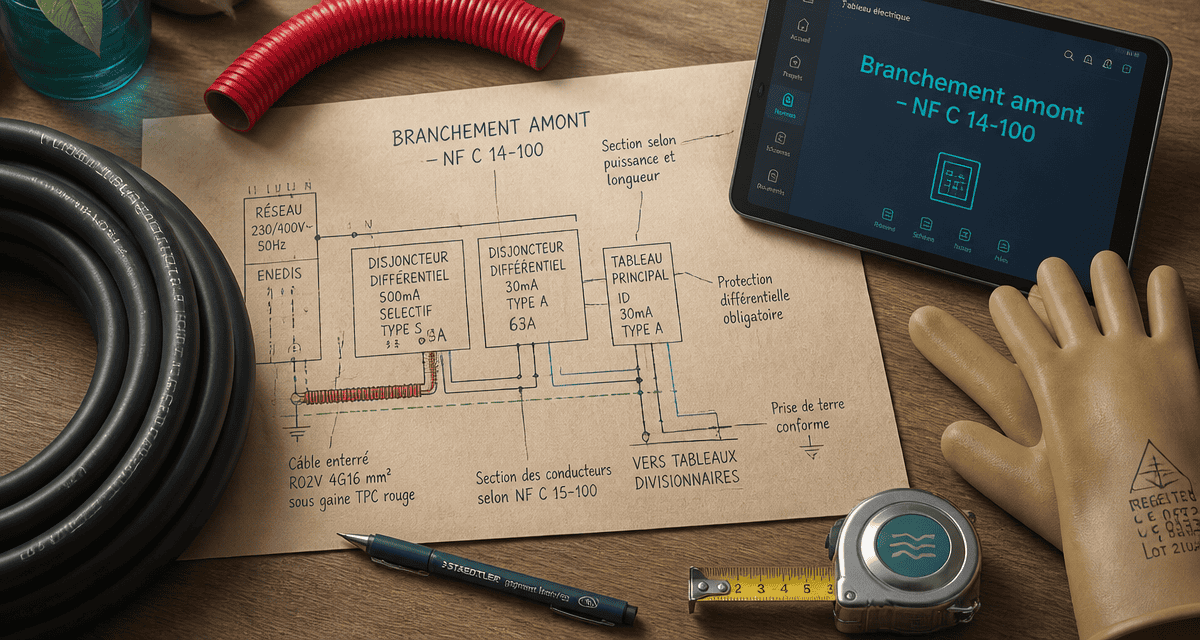 BRANCHEMENT AMONT
– NF C 14-100
Section selon
puissance et
longueur
RÉSEAU
230/400V~
50Hz
ENEDIS
N
DISJONCTEUR
DIFFÉRENTIEL
500mA
SELECTIF
TYPE S
DISJONCTEUR
DIFFÉRENTIEL
30mA
TYPE A
63A
TABLEAU
PRINCIPAL
ID
30mA
TYPE A
Protection
différentielle
obligatoire
Prise de terre
conforme
Câble enterré
RO2V 4G16 mm²
sous gaine TPC rouge
Section des conducteurs
selon NF C 15-100
VERS TABLEAUX
DIVISIONNAIRES
Tableau électrique
Accueil
Projets
Branchement amont
– NF C 14-100
STAEDTLER pigment
2 3 4 5 3